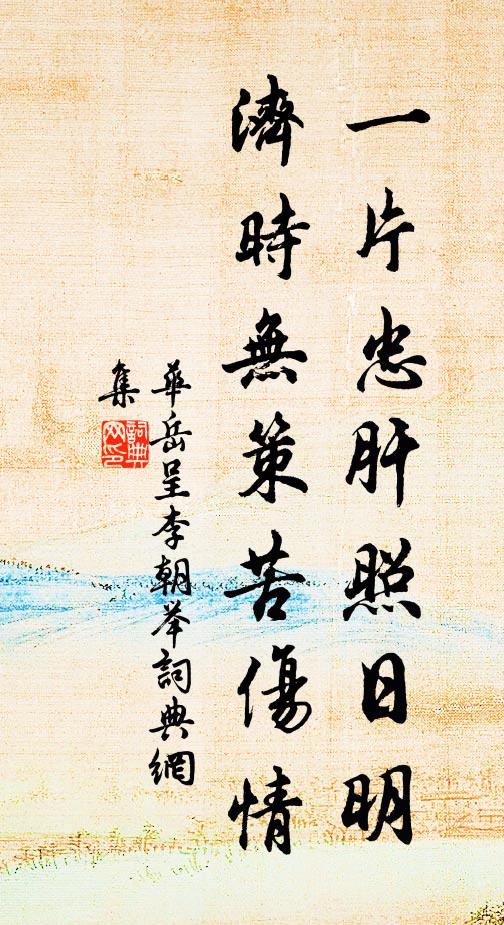 一片忠肝照日明
濟時無策苦傷情
華岳呈李朝举詞典網
集
詞典
网印